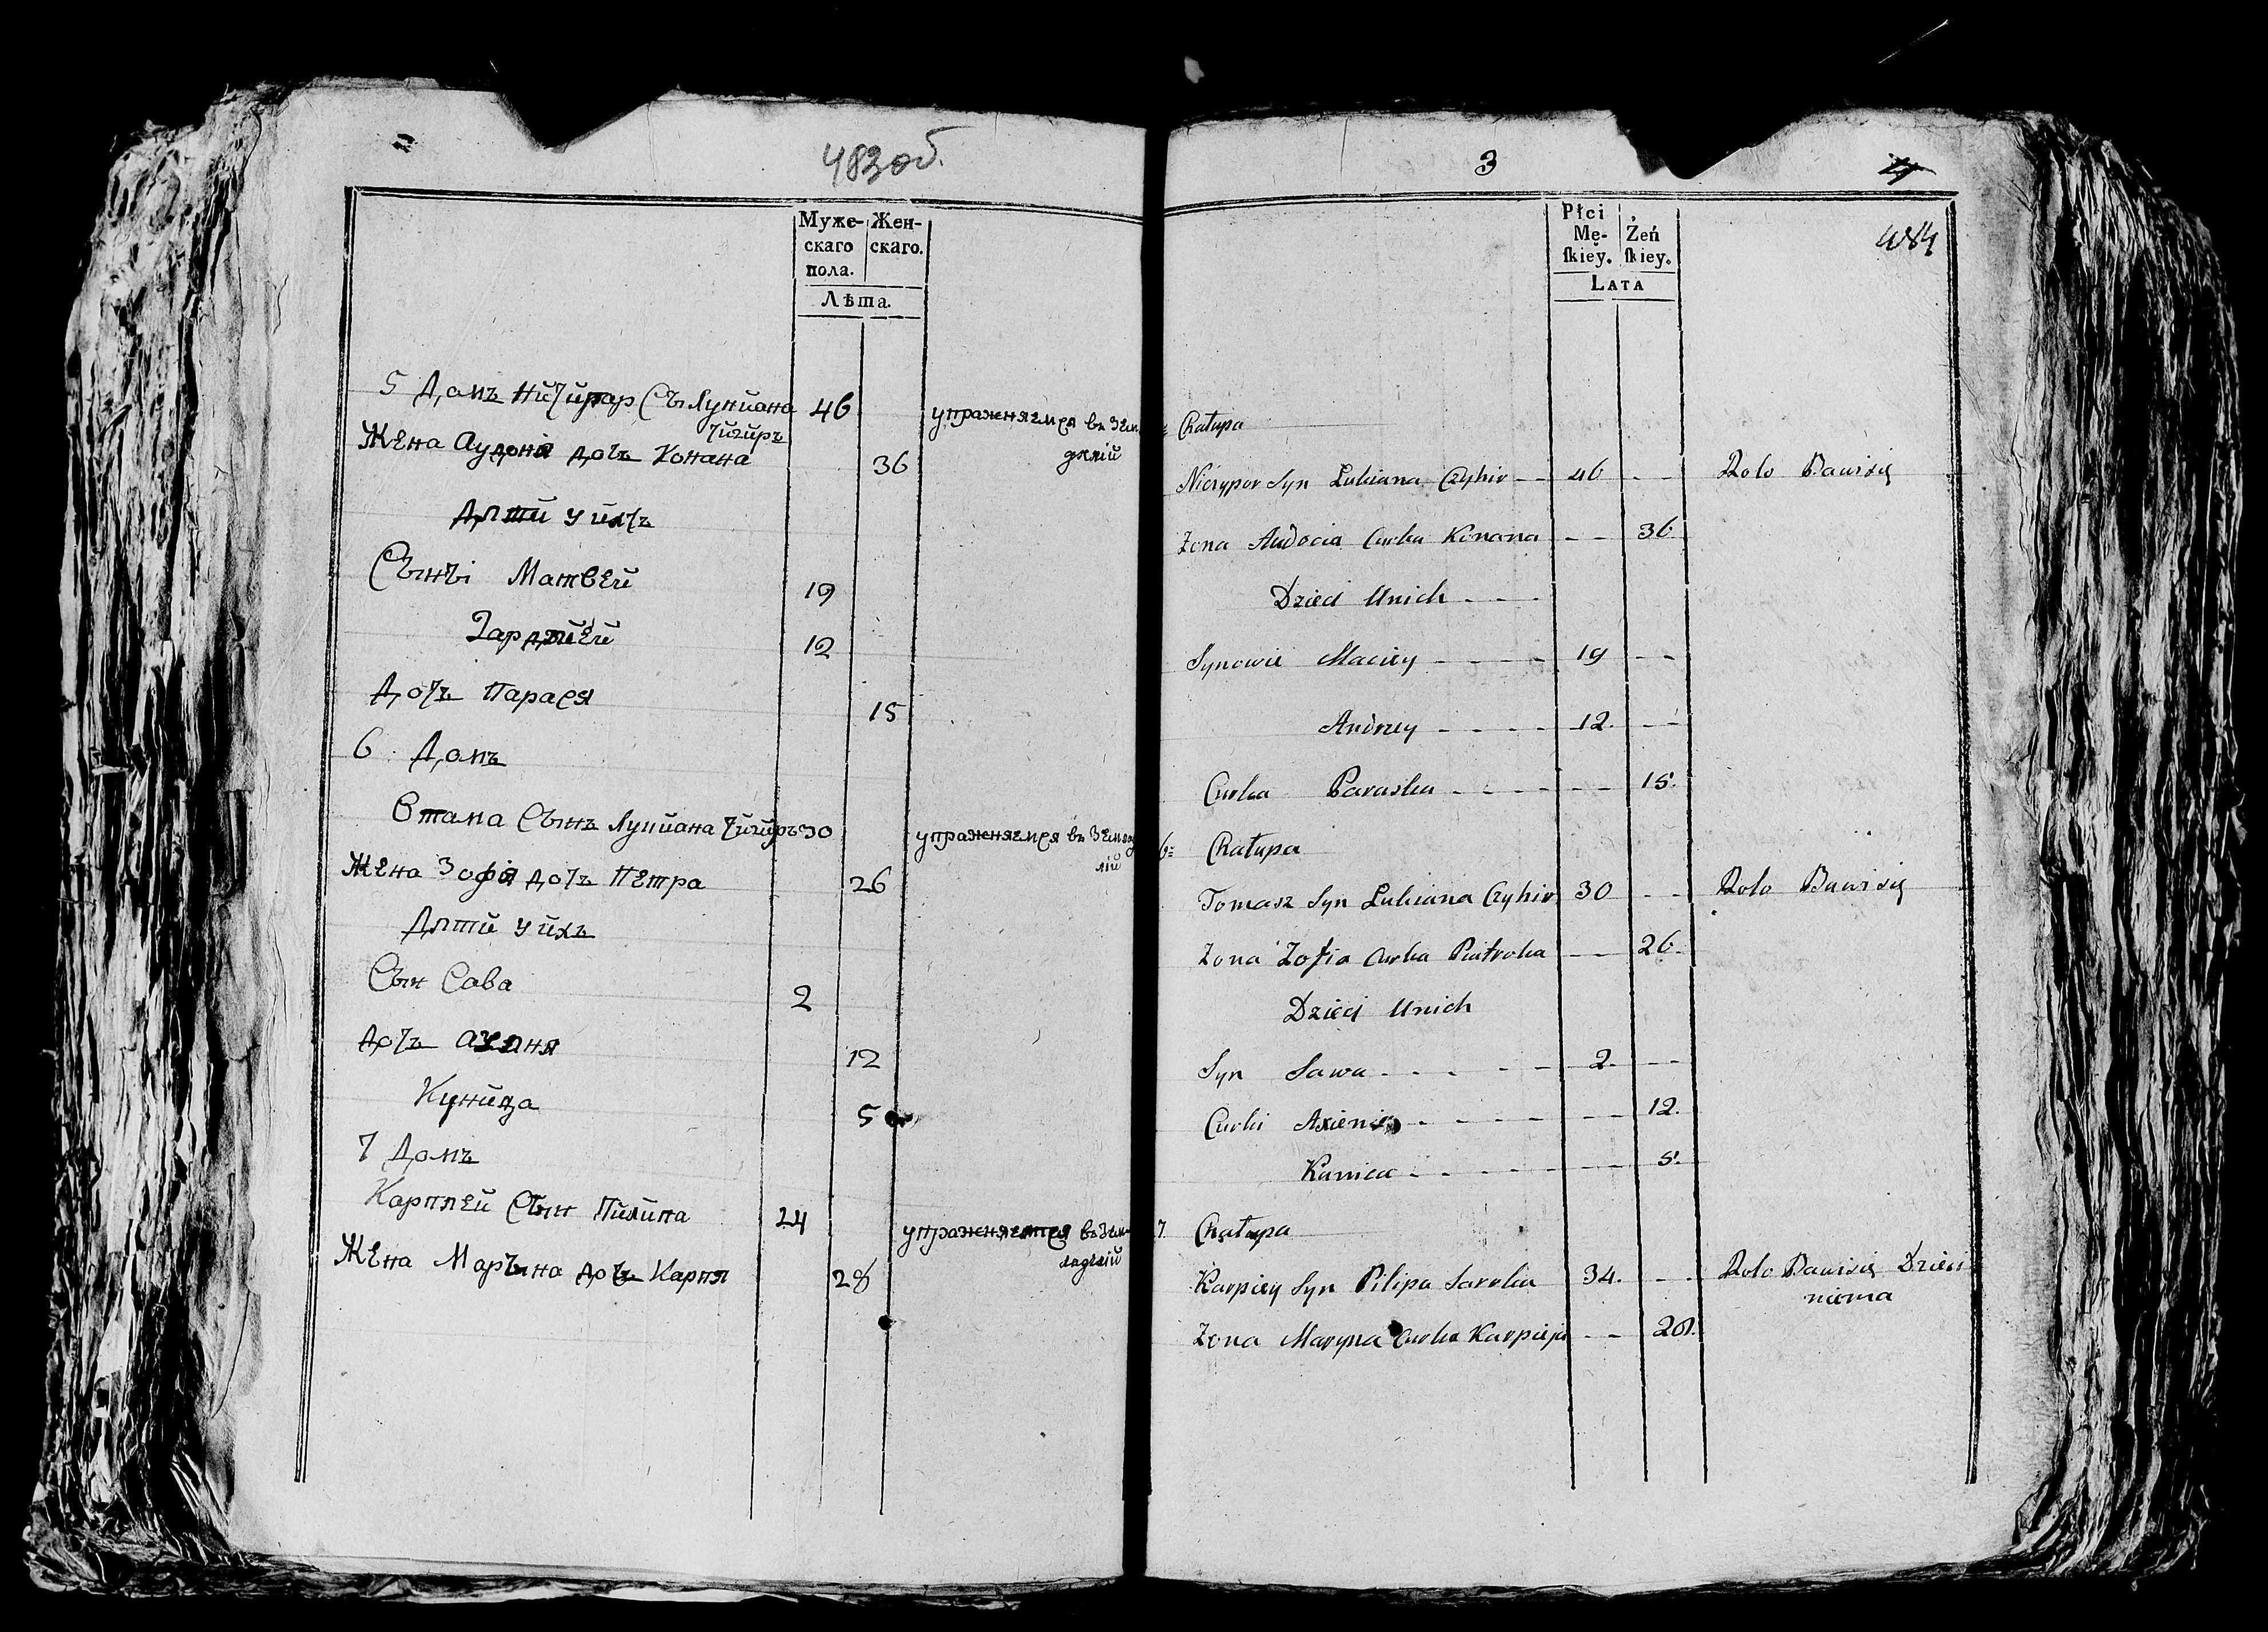 483 об.
Муже-
скаго
пола.
Жен-
скаго.
Лѣта.
5 Домъ Ничипар Съ Лукиана 46 упражняемся въ Зем
Чигиръ
Жена Аудоня дочъ Конана 36 дѣлій
Дѣти у ихъ
Сынъі Матвей 19
12
Дочъ Парася 15
6 Домъ
Стама Сынъ Лукиана Чигиръ 30 упражняемся въ Земледѣ
лій
Жена Зофія дочъ Петра 26
Дѣти у ихъ
Сын Сава 2
дочъ 12
Куница 5
7 Домъ
Карпѣй Сын Пилипа 24 упражняемся въ Зем
ладѣлій
Жена Марына дочъ Карпя 28
3
4
484
Płci
Mę-
ſkiey.
Żeń
ſkiey.
LATA
Chałupa
Niczypor Syn Łukiana Czyhir -- 46 -- Rolo Bawi się
Żona Audocia Curka Konana -- 36
Dzieci Unich ---
Synowie Maciey ---- 19 --
Andrzey ---- 12. --
Curka Paraska ---- -- 15.
6= Chałupa
Tomasz Syn Łukiana Czyhir 30 -- Rolo Bawi się
Żona Zofia Curka Piatroka -- 26.
Dzieci Unich
Syn Sawa ----- 2. --
Curki Axienia ----- -- 12.
Kunica ----- -- 5.
7. Chałupa
Karpiey Syn Pilipa Saroka 34. -- Rolo Bawi się Dzieci
niema
Żona Maryna Curka Karpieja -- 28.